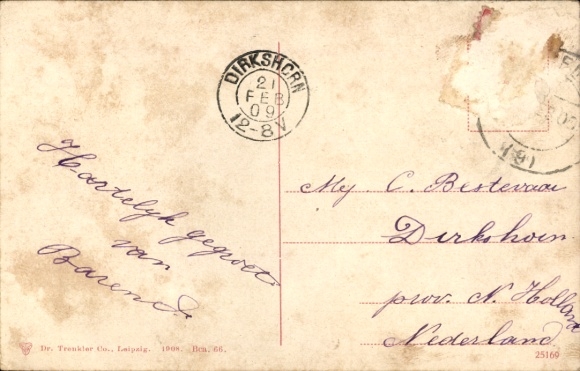 DIRKSHORN
21
FEB
09
12-8V
Hartelyk gegroet
van
Barend.
Mej C. Bestevaar
Dirkshorn
prov. N. Holland
Nederland
Dr. Trenkler Co., Leipzig. 1908. Ben. 66.
25160